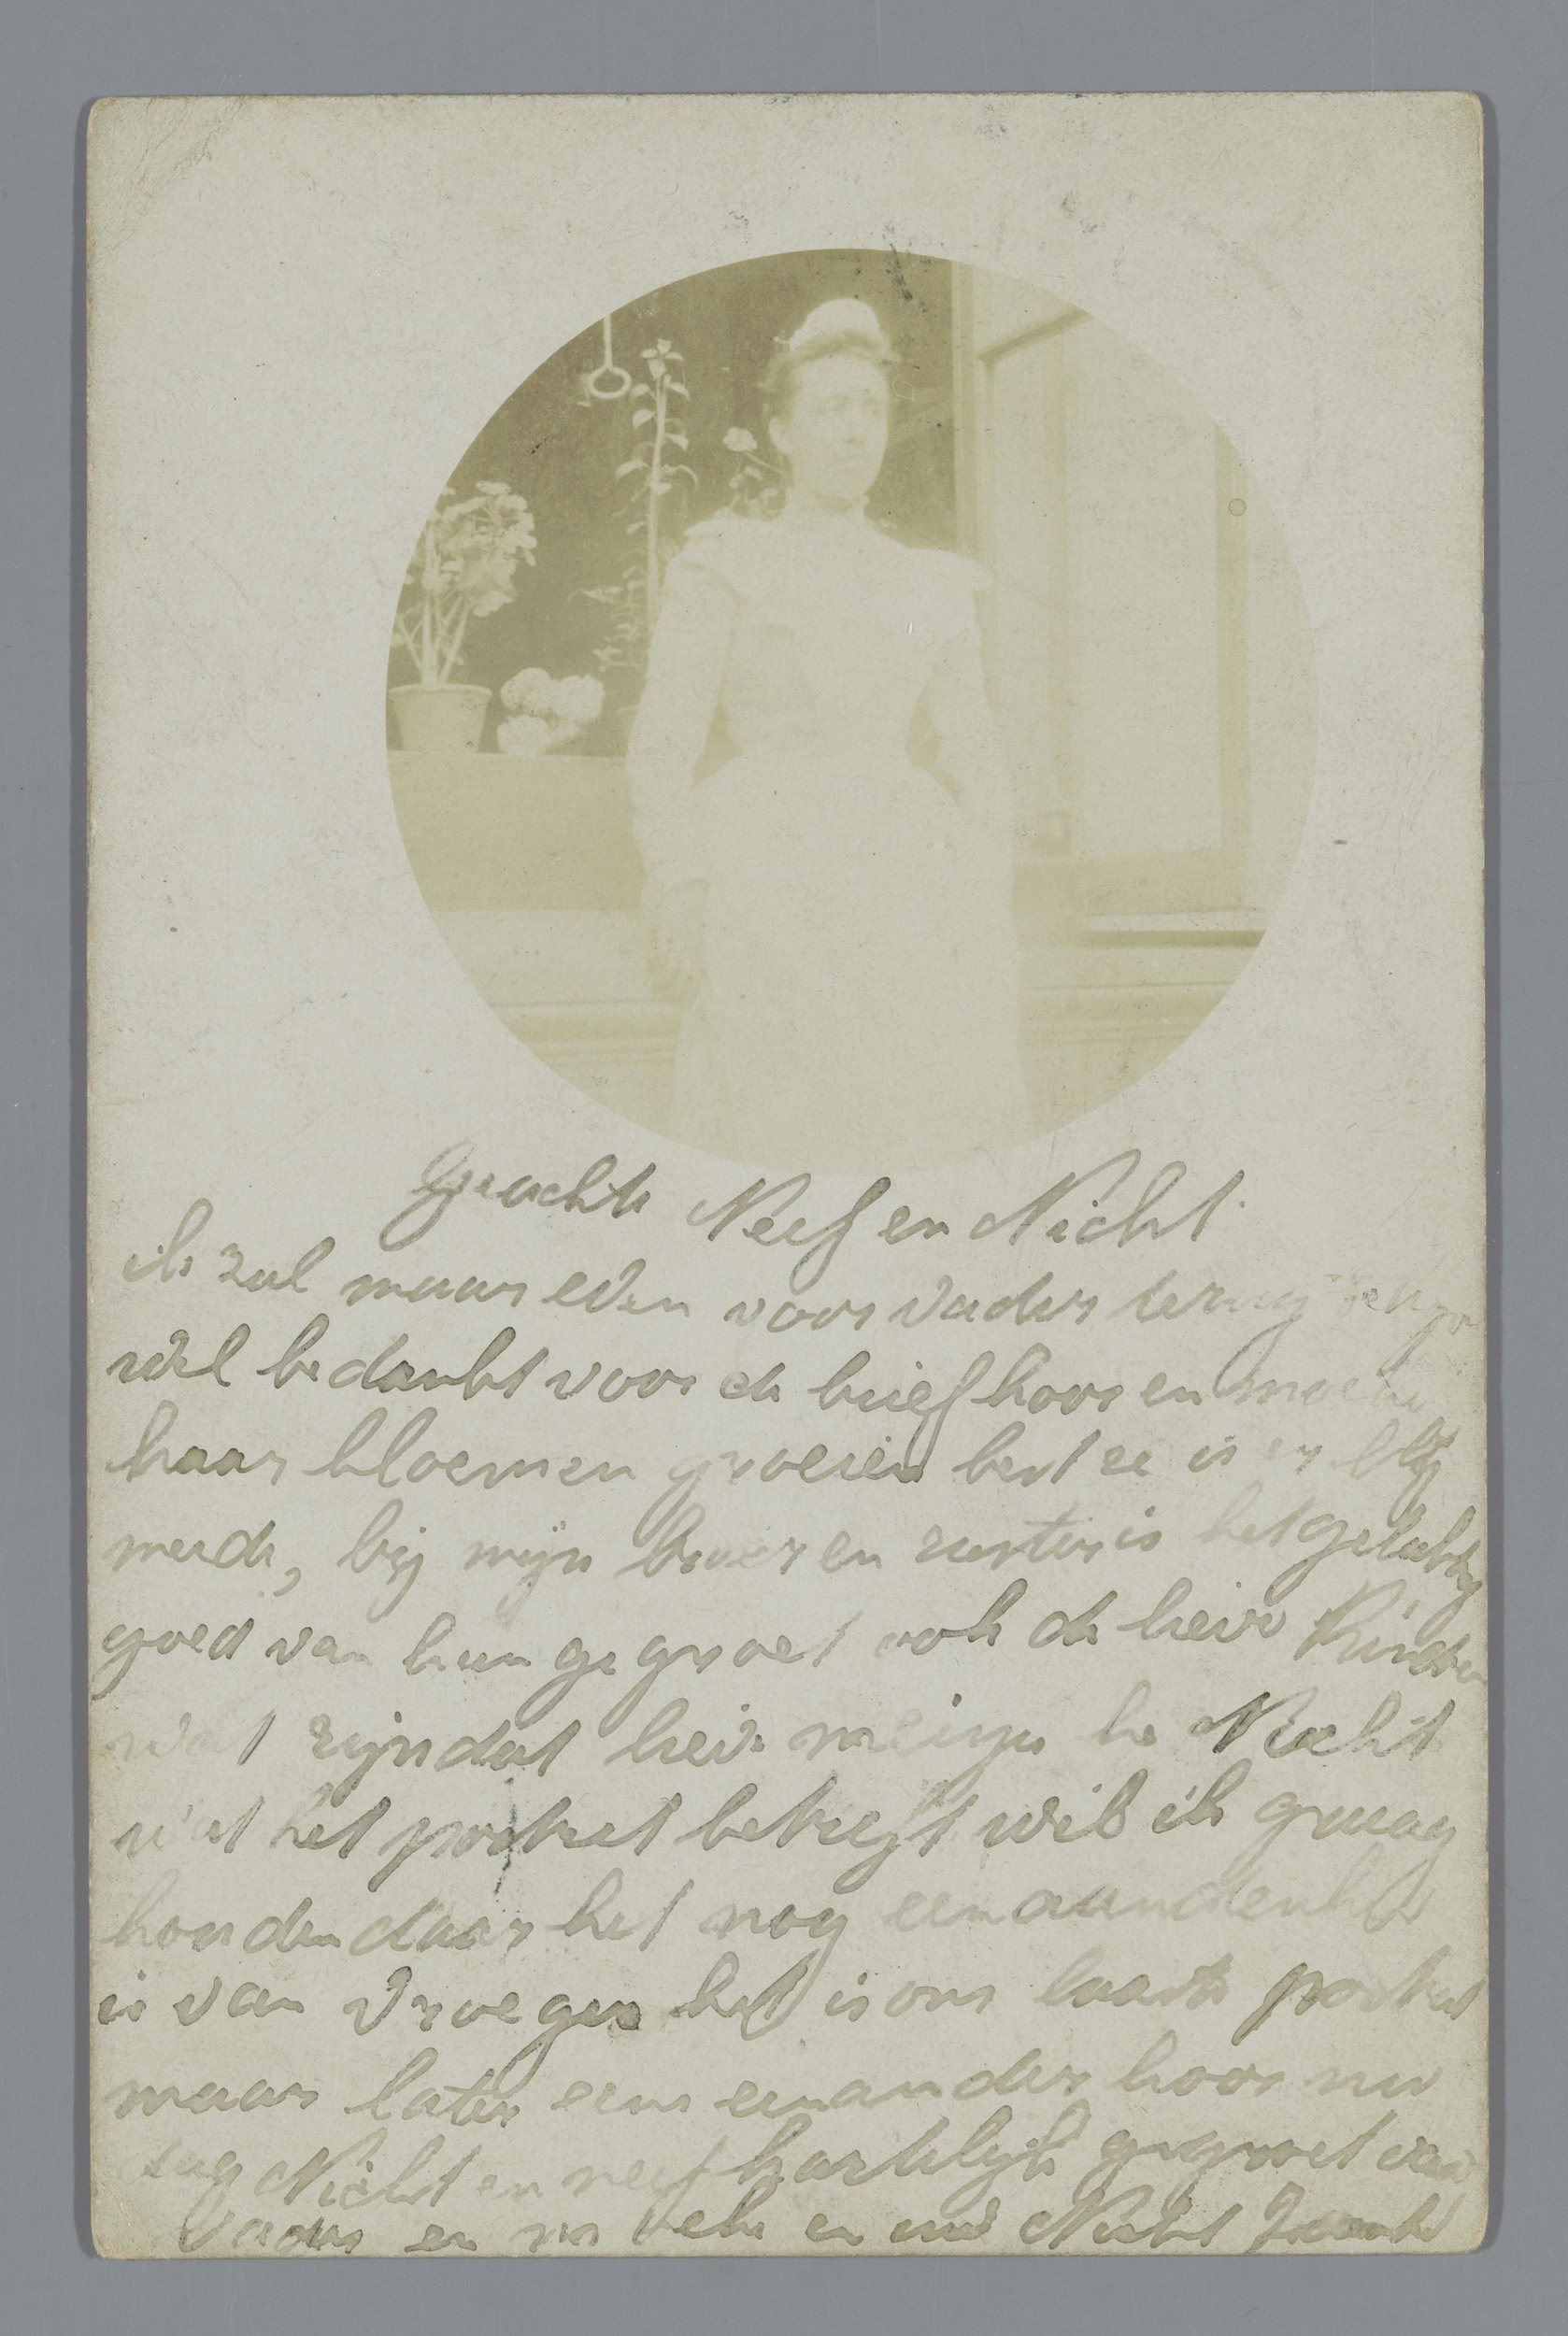 Geachte Neef en Nicht
ik zal maar even voor vader terug
wel bedankt voor de brief hoor en moeke
haar bloemen groeien best ze is er blij
mede, bij mijn broer en zuster is het gelukkig
goed van hun gegroet ook de lieve Kinderen
wat zijn dat lieve he Nicht
wat het portret betreft wil ik graag
houden daar het nog een aandenken
is van vroeger het is ons laatste portret
maar later eens een ander hoor nu
dag Nicht en neef hartelijk gegroet van
Vader en moeke en uw Nicht